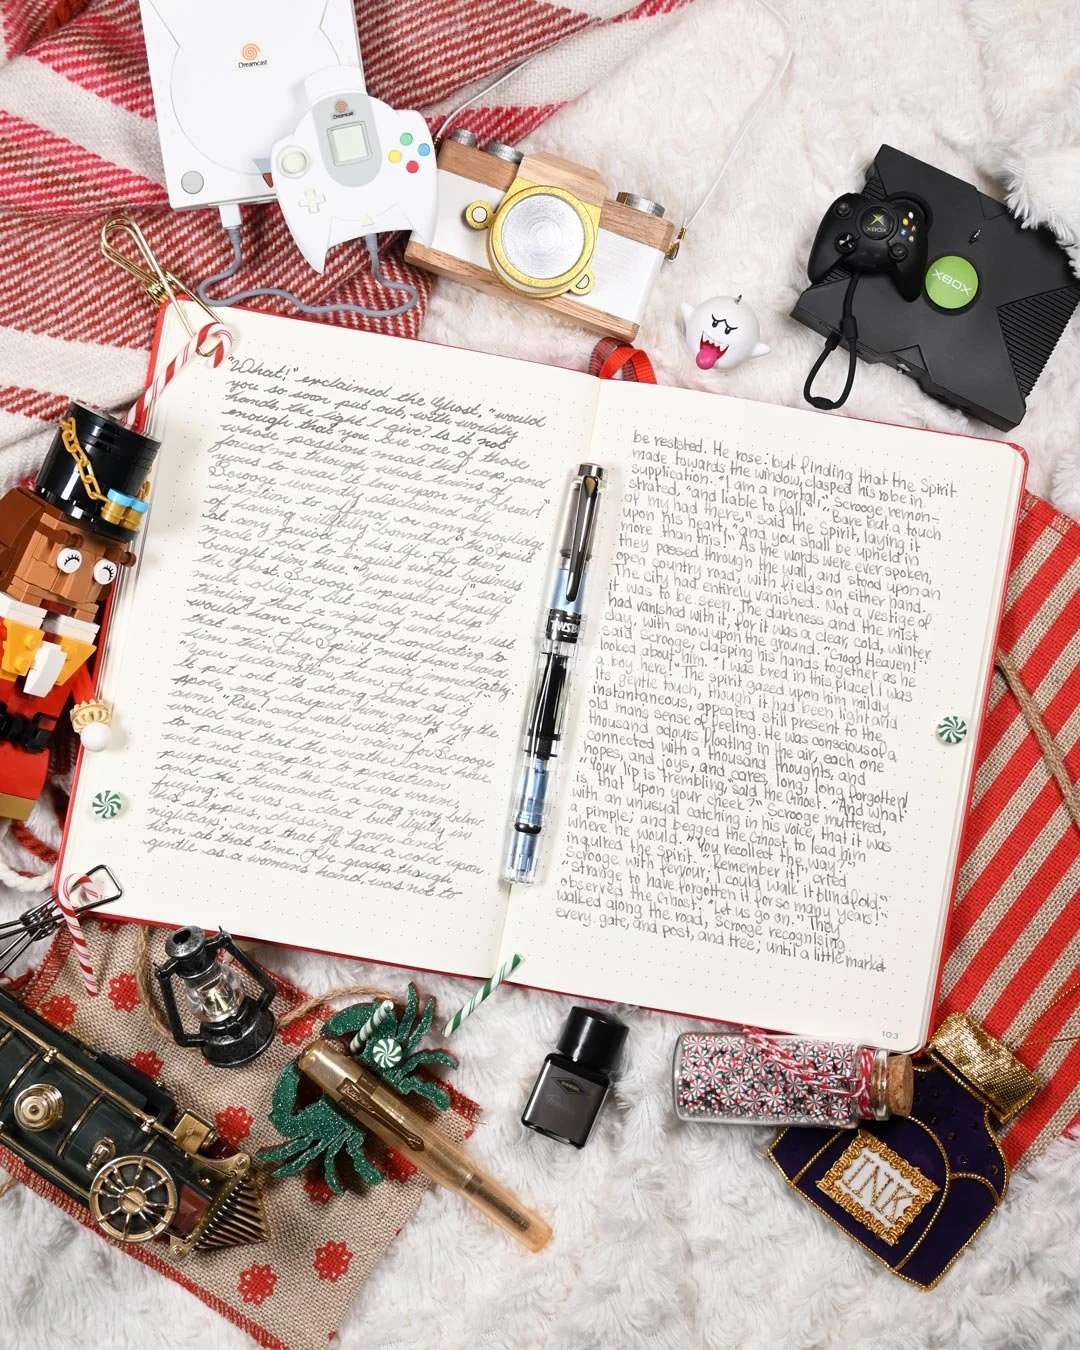 Dreamcast
Dreamcast
XBOX
XBOX
"What!" exclaimed the Ghost, "would
you so soon put out, with worldly
hands, the light I give? Is it not
enough that you are one of those
whose passions made this cap, and
forced me through whole trains of
years to wear it low upon my brow!"
Scrooge reverently disclaimed all
intention to offend, or any knowledge
of having wilfully "bonneted" the Spirit
at any period of his life. He then
made bold to enquire what business
brought him there. "Your welfare!" said
the Ghost. Scrooge expressed himself
much obliged, but could not help
thinking that a night of unbroken rest
would have been more conducting to
that end. The Spirit must have heard
him thinking, for it said immediately:
"your reclamation, then. Take heed!"
It put out its strong hand as it
spoke, and clasped him gently by the
arm. "Rise! and walk with me!" It
would have been in vain for Scrooge
to plead that the weather and hour
were not adapted to pedestrian
purposes; that the bed was warm,
and the thermometer a long way below
freezing; he was clad but lightly in
his slippers, dressing gown and
nightcap; and that he had a cold upon
him at that time. The grasp, though
gentle as a womans hand, was not to
be resisted. He rose: but finding that the Spirit
made towards the window, clasped his robe in
supplication. "I am a mortal," Scrooge remon-
strated, "and liable to fall." "Bare but a touch
of my had there," said the Spirit, laying it
upon his heart, "and you shall be upheld in
more than this!" As the words were ever spoken,
they passed through the wall, and stood upon an
open country road, with fields on either hand.
The city had entirely vanished. Not a vestige of
it was to be seen. The darkness and the mist
had vanished with it, for it was a clear, cold, winter
day, with snow upon the ground. "Good Heaven!"
said Scrooge, clasping his hands together as he
looked about him. "I was bred in this place! I was
a boy here!" The spirit gazed upon him mildly
Its gentle touch, though it had been light and
instantaneous, appeared still present to the
old mans sense of feeling. He was conscious of a
thousand odours floating in the air, each one
connected with a thousand thoughts, and
hopes, and joys, and cares, long, long forgotten!
"Your lip is trembling, said the Ghost. "And what
is that upon your cheek?" Scrooge muttered,
with an unusual catching in his voice, that it was
a pimple; and begged the Ghost to lead him
where he would. "You recollect the way?"
inquired the Spirit. "Remember it!" cried
Scrooge with fervour; I could walk it blindfold."
"Strange to have forgotten it for so many years!"
observed the Ghost. "Let us go on." They
walked along the road, Scrooge recognising
every gate, and post, and tree; until a little market
103
TWSBI
INK